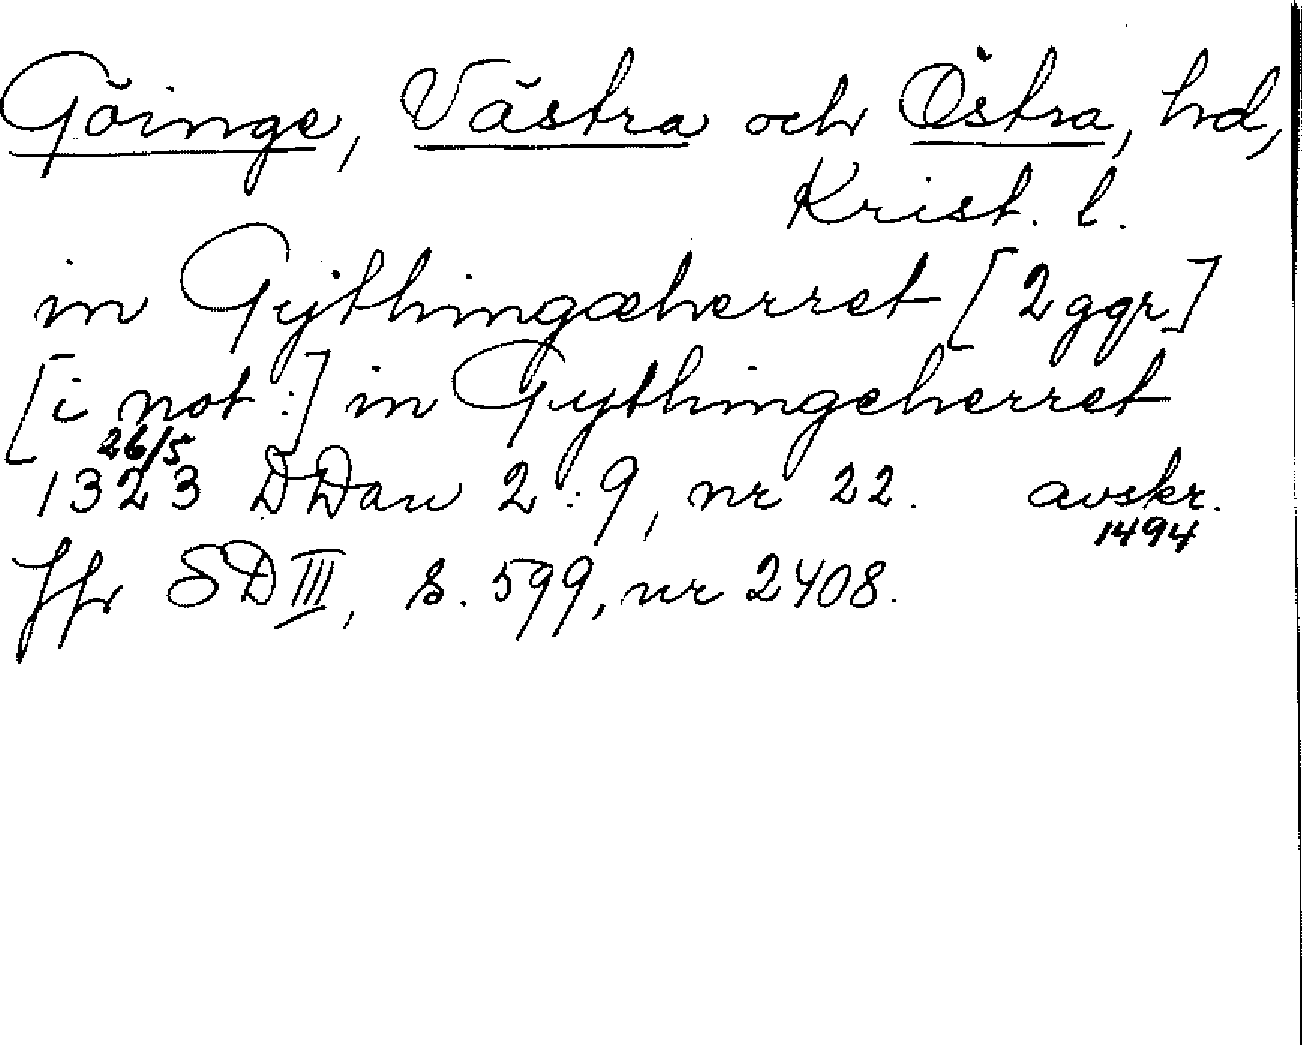 Göinge, Västra och Östra, hd,
Krist. l.
in Gythingæherret [2 ggr]
[i not:] in Gythingeherret
26/5
1323 DDan 2:9, nr 22. avskr.
1494
Jfr SD III, s. 599, nr 2408.